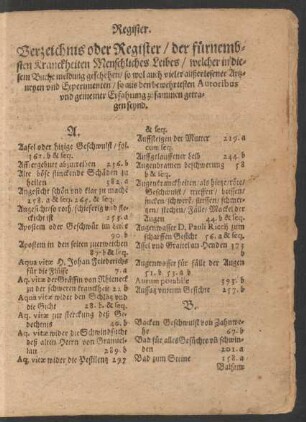 Register.
Verzeichnis oder Register / der fürnemb-
sten Kranckheiten Menschliches Leibes / welcher in die-
sem Buche meldung geschehen / so wol auch vieler außerlesener Artz-
neyen und Experimenten / so aus den bewehrtesten Autoribus
und gemeiner Erfahrung zusammen getra-
gen seynd.
A.
Aasel oder hitzige Geschwulst / fol.
161. b & seq.
Affterge burt abzutreiben 236. b
Alte böse fliessende Schäden zu
heilen 182. a
Angesicht schön und klar zu machē
258. a & seq. 265. & seq.
Angesicht so roth / schieferig und fle-
ckicht ist 255. a
Apostem oder Geschwär im Leibe
90. b
Apostem in den seiten zuerweichen
87. b & seq.
Aqua vitæ H. Johan Friederichs
für die Flüsse 7. a
Aq. vitæ der Gräffin von Mhieneck
zu der schweren kranckheit 21. b
Aqua vitæ wider den Schlag und
die Gicht 28. b & seq.
Aqua vitæ zur sterckung deß Ge-
dechtnis 40. b
Aq. vitæ wider die Schwindsucht
deß alten Herrn von Granvel-
lan 69. b
Aq. vitæ wider die Pestilentz 293
& seq.
Auffsteigen der Mutter 219. a
cum seq.
Auffgelauffener leib 244. b
Augenbramen beschwerung 58
b & seq.
Augenkranckheiten / als hitze / röte /
Geschwulst / treffen / beissen /
jucken / schwere / fürsten / schmer-
tzen / stechen / Fälle / Mackel der
Augen 44. b & seq.
Augenwasser D. Pauli Rieth zum
schaaffen Gesicht 76. a & seq.
Asel und Granellan-Henden 175
b
Augenwasser für fälle der Augen
51. b 53. a b
Aurum potabile 295. b
Aussatz unterm Gesichte 253. b
B.
Backen Geschwulst von Zahnwehe
67. b
Bad für alles Gesüchte uñ schwin-
den 201. a
Bad zum Steine 158. a
Balsam